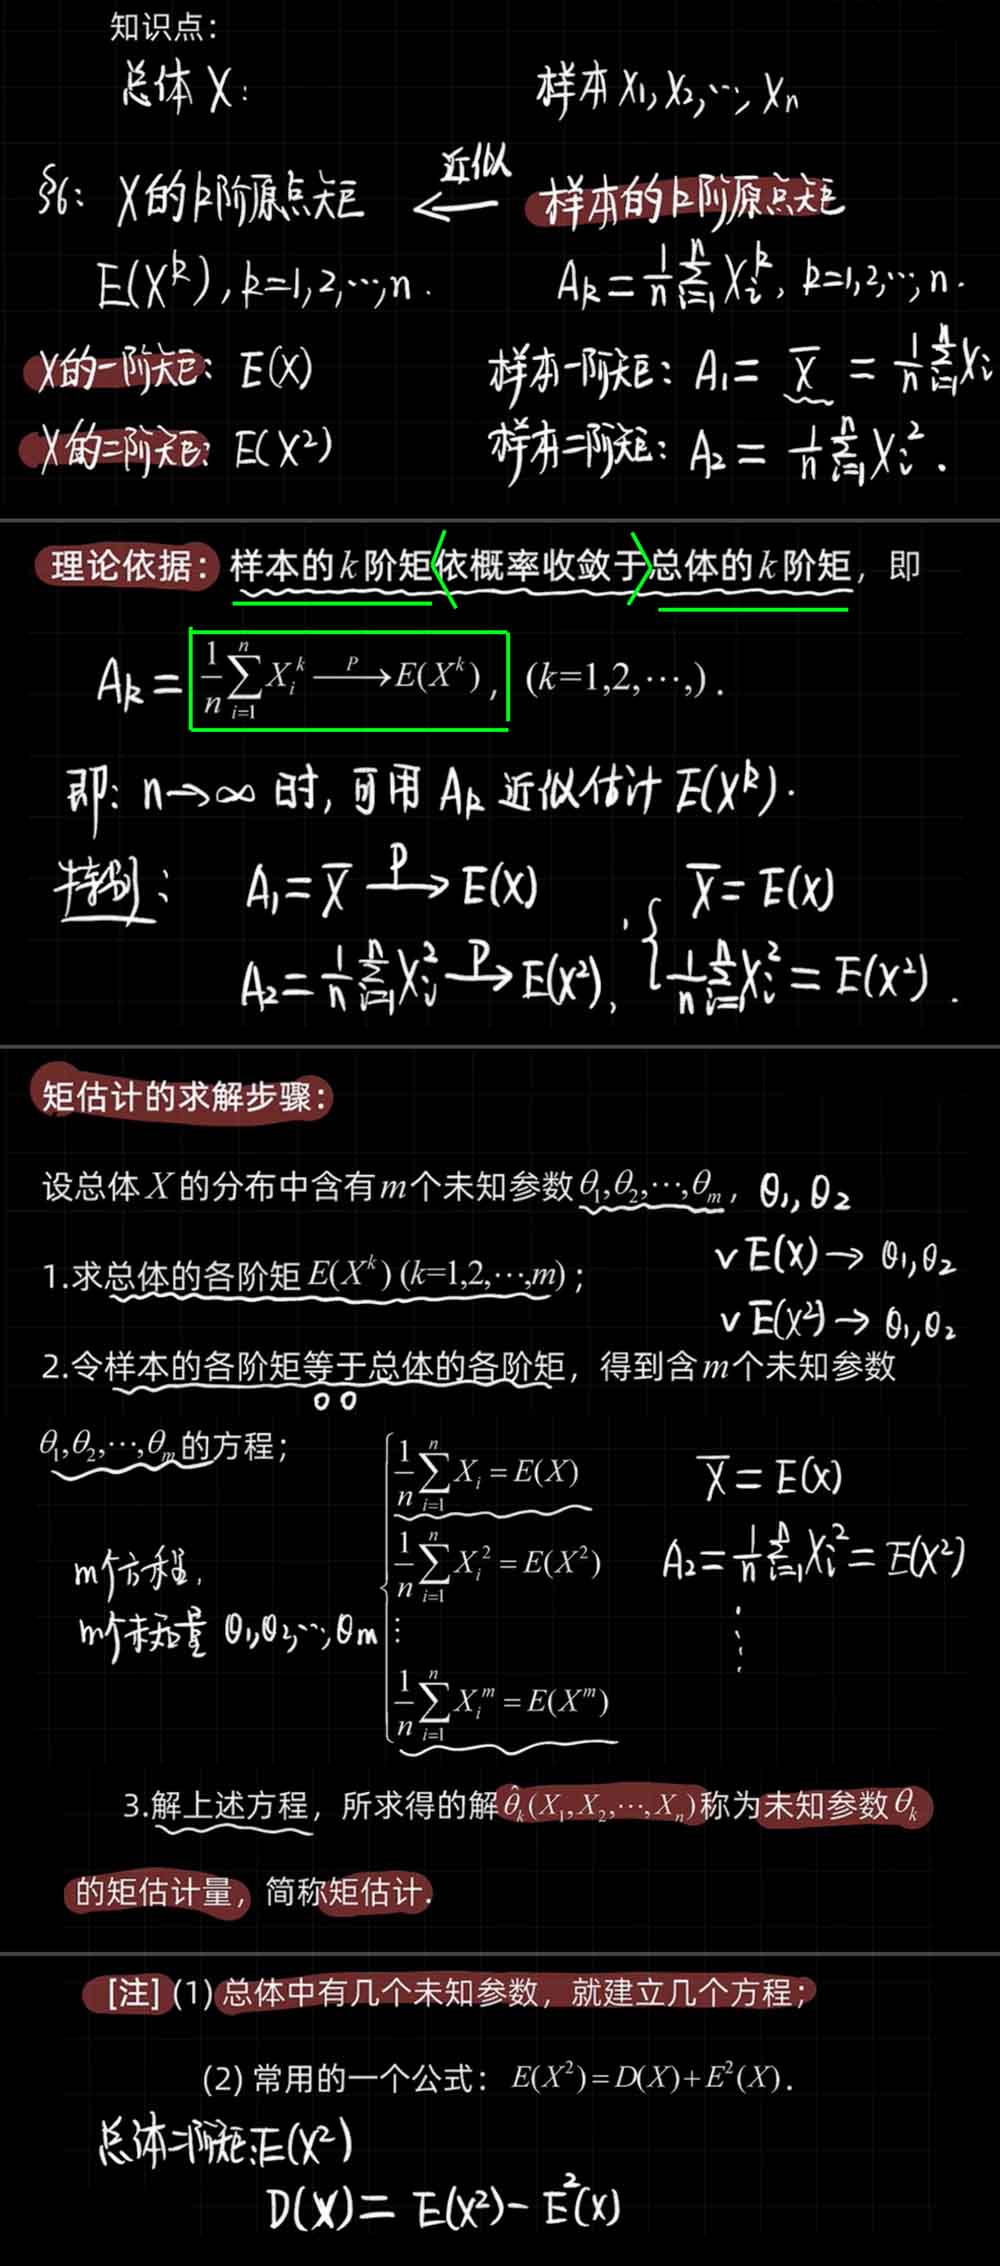 知识点：
总体 X： 样本 X₁, X₂, ⋯, Xₙ
§6： X的k阶原点矩 ←近似 样本的k阶原点矩
E(Xᵏ), k=1,2,⋯,n. Aₖ = 1/n ∑ᵢ₌₁ⁿ Xᵢᵏ, k=1,2,⋯,n.
X的一阶矩： E(X) 样本一阶矩： A₁ = X̄ = 1/n ∑ᵢ₌₁ⁿ Xᵢ
X的二阶矩： E(X²) 样本二阶矩： A₂ = 1/n ∑ᵢ₌₁ⁿ Xᵢ².
理论依据： 样本的 k 阶矩〈依概率收敛于〉总体的 k 阶矩，即
Aₖ = 1/n ∑ᵢ₌₁ⁿ Xᵢᵏ —P→ E(Xᵏ)， (k=1,2,⋯,).
即: n→∞ 时, 可用 Aₖ 近似估计 E(Xᵏ).
特别： A₁ = X̄ —P→ E(X) X̄ = E(X)
A₂ = 1/n ∑ᵢ₌₁ⁿ Xᵢ² —P→ E(X²), { 1/n ∑ᵢ₌₁ⁿ Xᵢ² = E(X²).
矩估计的求解步骤：
设总体 X 的分布中含有 m 个未知参数 θ₁,θ₂,⋯,θₘ， θ₁, θ₂
∨ E(X) → θ₁,θ₂
1.求总体的各阶矩 E(Xᵏ) (k=1,2,⋯,m)；
∨ E(X²) → θ₁,θ₂
2.令样本的各阶矩等于总体的各阶矩，得到含 m 个未知参数
θ₁,θ₂,⋯,θₘ 的方程；
1/n ∑ᵢ₌₁ⁿ Xᵢ = E(X) X̄ = E(X)
1/n ∑ᵢ₌₁ⁿ Xᵢ² = E(X²) A₂ = 1/n ∑ᵢ₌₁ⁿ Xᵢ² = E(X²)
m个方程,
m个未知量 θ₁,θ₂,⋯,θm ⋮ ⋮
1/n ∑ᵢ₌₁ⁿ Xᵢᵐ = E(Xᵐ)
3.解上述方程，所求得的解 θ̂ₖ(X₁,X₂,⋯,Xₙ) 称为未知参数 θₖ
的矩估计量，简称矩估计.
[注] (1) 总体中有几个未知参数，就建立几个方程；
(2) 常用的一个公式： E(X²)=D(X)+E²(X).
总体二阶矩: E(X²)
D(X) = E(X²) - E²(X)